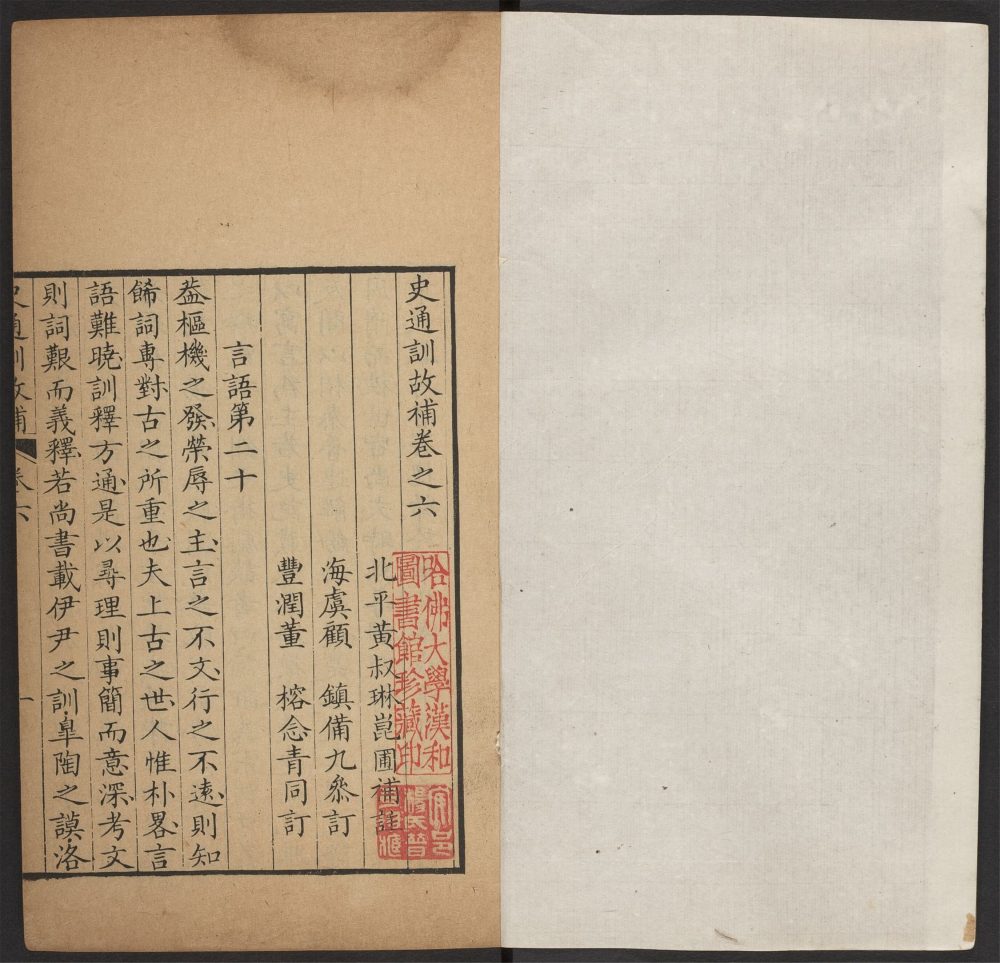 史通訓故補卷之六
北平黃叔琳崑圃補註
海虞顧　鎮備九叅訂
豐潤董　榕念青同訂
言語第二十
葢樞機之發榮辱之主言之不文行之不遠則知
餙詞專對古之所重也夫上古之世人惟朴畧言
語難曉訓釋方通是以尋理則事簡而意深考文
則詞艱而義釋若尚書載伊尹之訓臯陶之謨洛
史通訓故補　卷六　一
哈佛大學漢和
圖書館珍藏印